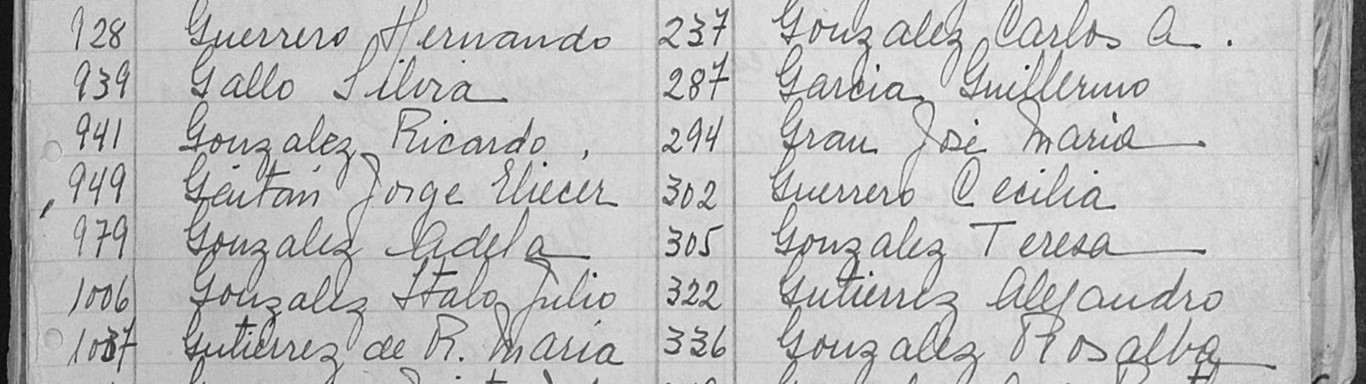 928 Guerrero Hernando 237 Gonzalez Carlos A.
939 Gallo Silvia 287 Garcia Guillermo
941 Gonzalez Ricardo, 294 Grau José Maria
949 Gaitán Jorge Eliecer 302 Guerrero Cecilia
979 Gonzalez Adela 305 Gonzalez Teresa
1006 Gonzalez Italo Julio 322 Gutierrez Alejandro
Gutierrez de R. Maria 336 Gonzalez Rosalba